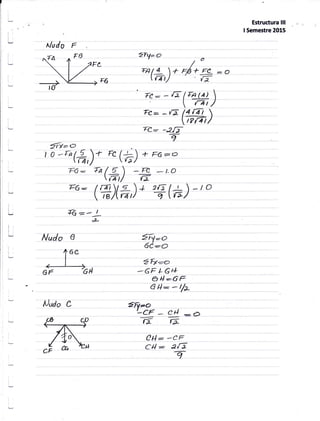 Estructura III
I Semestre 2015
Nudo F
FA FB FC
FG
10
ΣFy=0
FA(4/√41) + FB + FC/√2 = 0
FC = -√2 (FA(4)/√41)
FC = -√2 (4√41/18√41)
FC = -2√2/9
ΣFx=0
10 - FA(5/√41) + FC(1/√2) + FG = 0
FG = FA(5/√41) - FC/√2 - 10
FG = (√41/18)(5/√41) + 2√2/9 (1/√2) - 10
FG = -1/2
Nudo G
GC
GF GH
ΣFy=0
GC=0
ΣFx=0
-GF + GH
GH=GF
GH=-1/2
Nudo C
CB CD
0
CF CG CH
ΣFy=0
-CF/√2 - CH/√2 = 0
CH = -CF
CH = 2√2/9